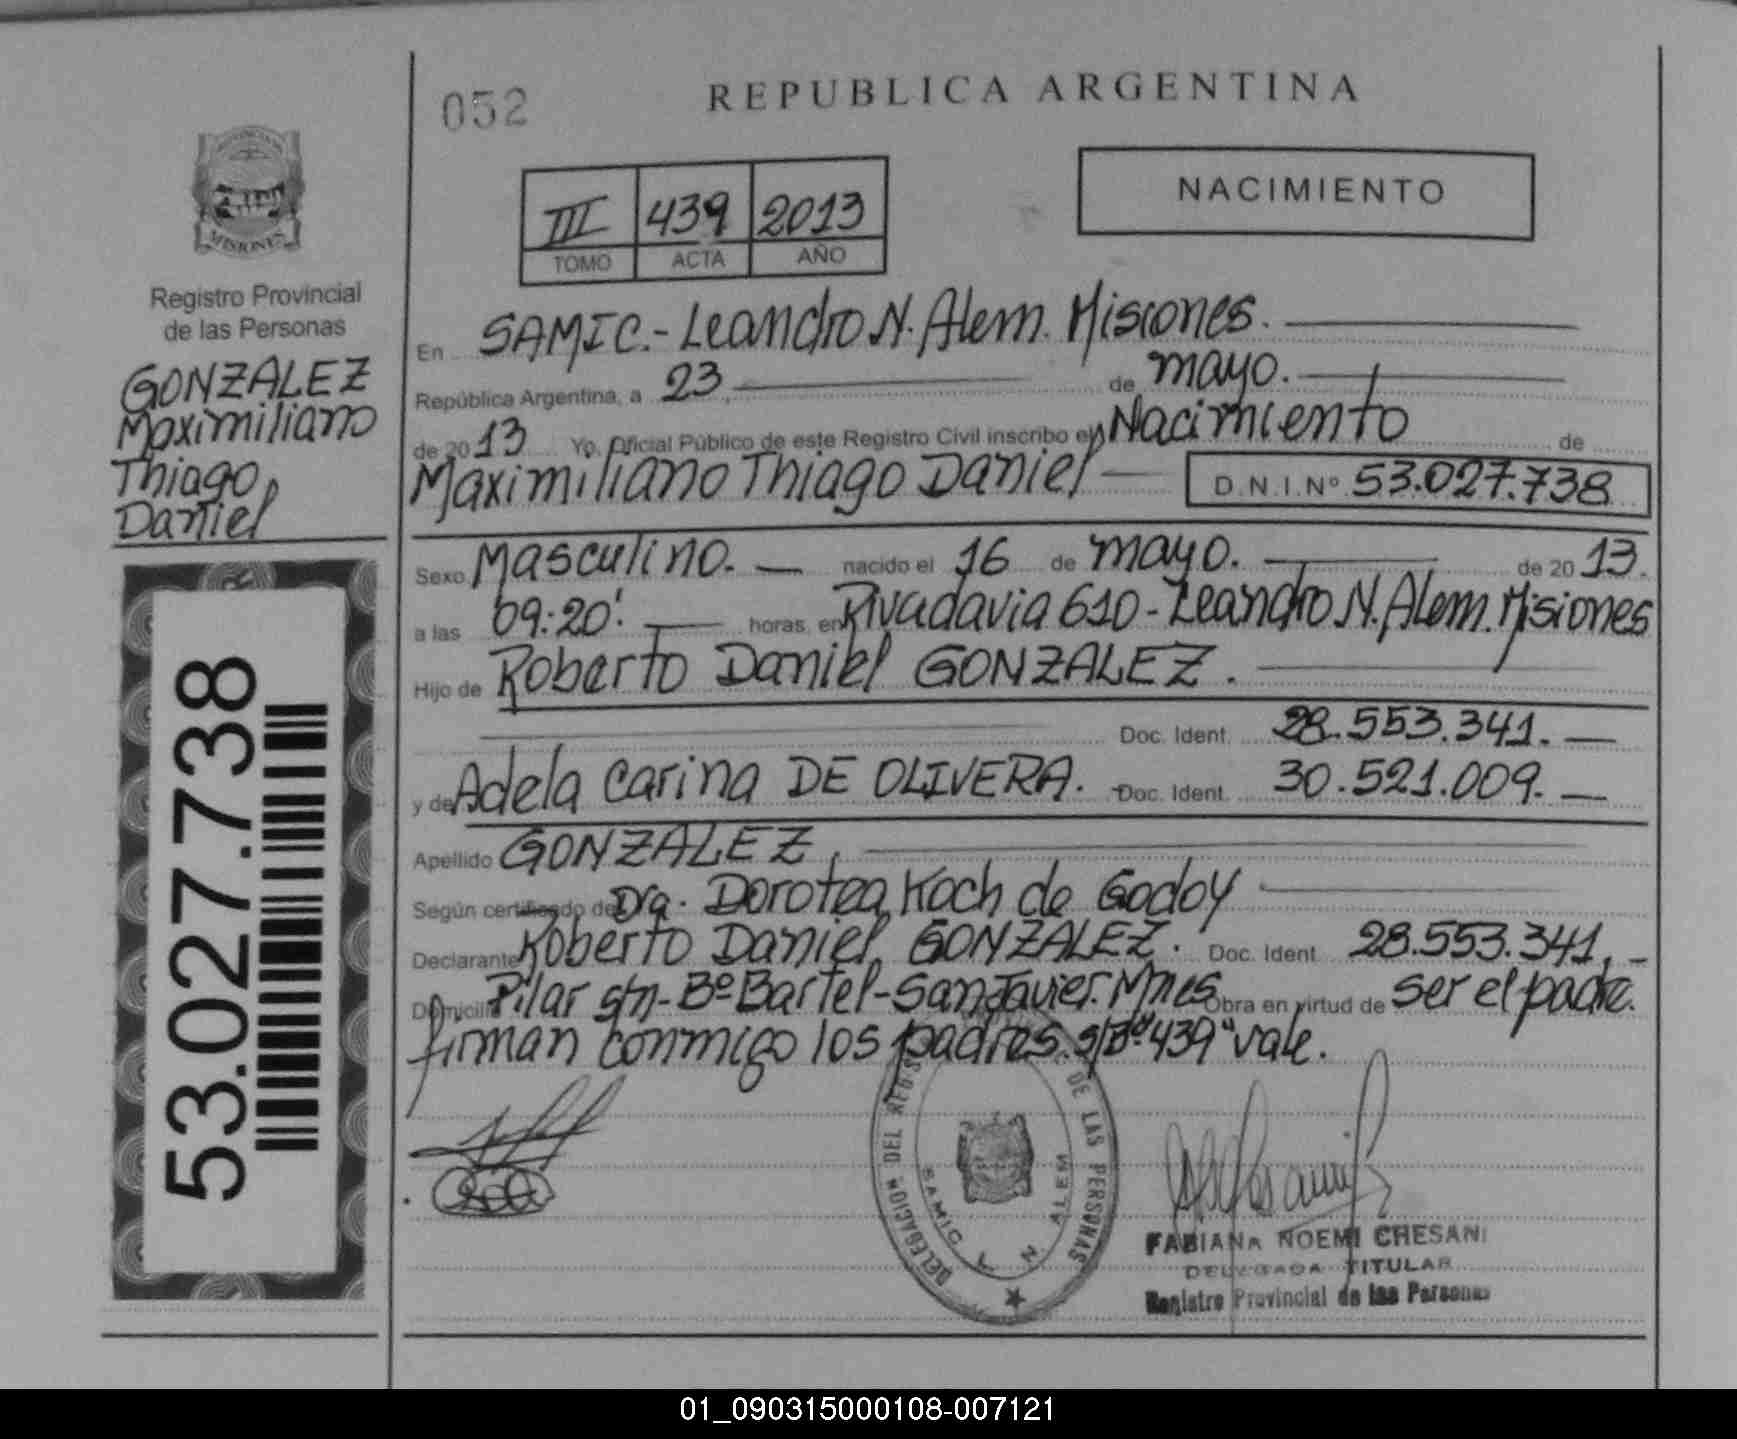 052
REPUBLICA ARGENTINA
NACIMIENTO
III 439 2013
TOMO ACTA AÑO
MISIONES
Registro Provincial
de las Personas
GONZALEZ
Maximiliano
Thiago
Daniel
53.027.738
En SAMIC.-Leandro N. Alem. Misiones.
República Argentina, a 23, de mayo.
de 2013 Yo, Oficial Público de este Registro Civil inscribo el Nacimiento de
Maximiliano Thiago Daniel D.N.I.Nº 53.027.738
Sexo Masculino. nacido el 16 de mayo. de 2013.
a las 09:20'. horas, en Rivadavia 610-Leandro N. Alem. Misiones
Hijo de Roberto Daniel GONZALEZ.
Doc. Ident. 28.553.341.
y de Adela Carina DE OLIVERA. Doc. Ident. 30.521.009.
Apellido GONZALEZ.
Según certificado de Dra. Dorotea Koch de Godoy
Declarante Roberto Daniel GONZALEZ. Doc. Ident. 28.553.341.
Domicilio Pilar s/n-Bº Bartel-San Javier. Mnes Obra en virtud de ser el padre.
firman conmigo los padres. s/Bº"439" vale.
DELEGACION DEL REG. DE LAS PERSONAS
SAMIC L. N. ALEM
FABIANA NOEMI CHESANI
DELEGADA TITULAR
Registro Provincial de las Personas
01_090315000108-007121